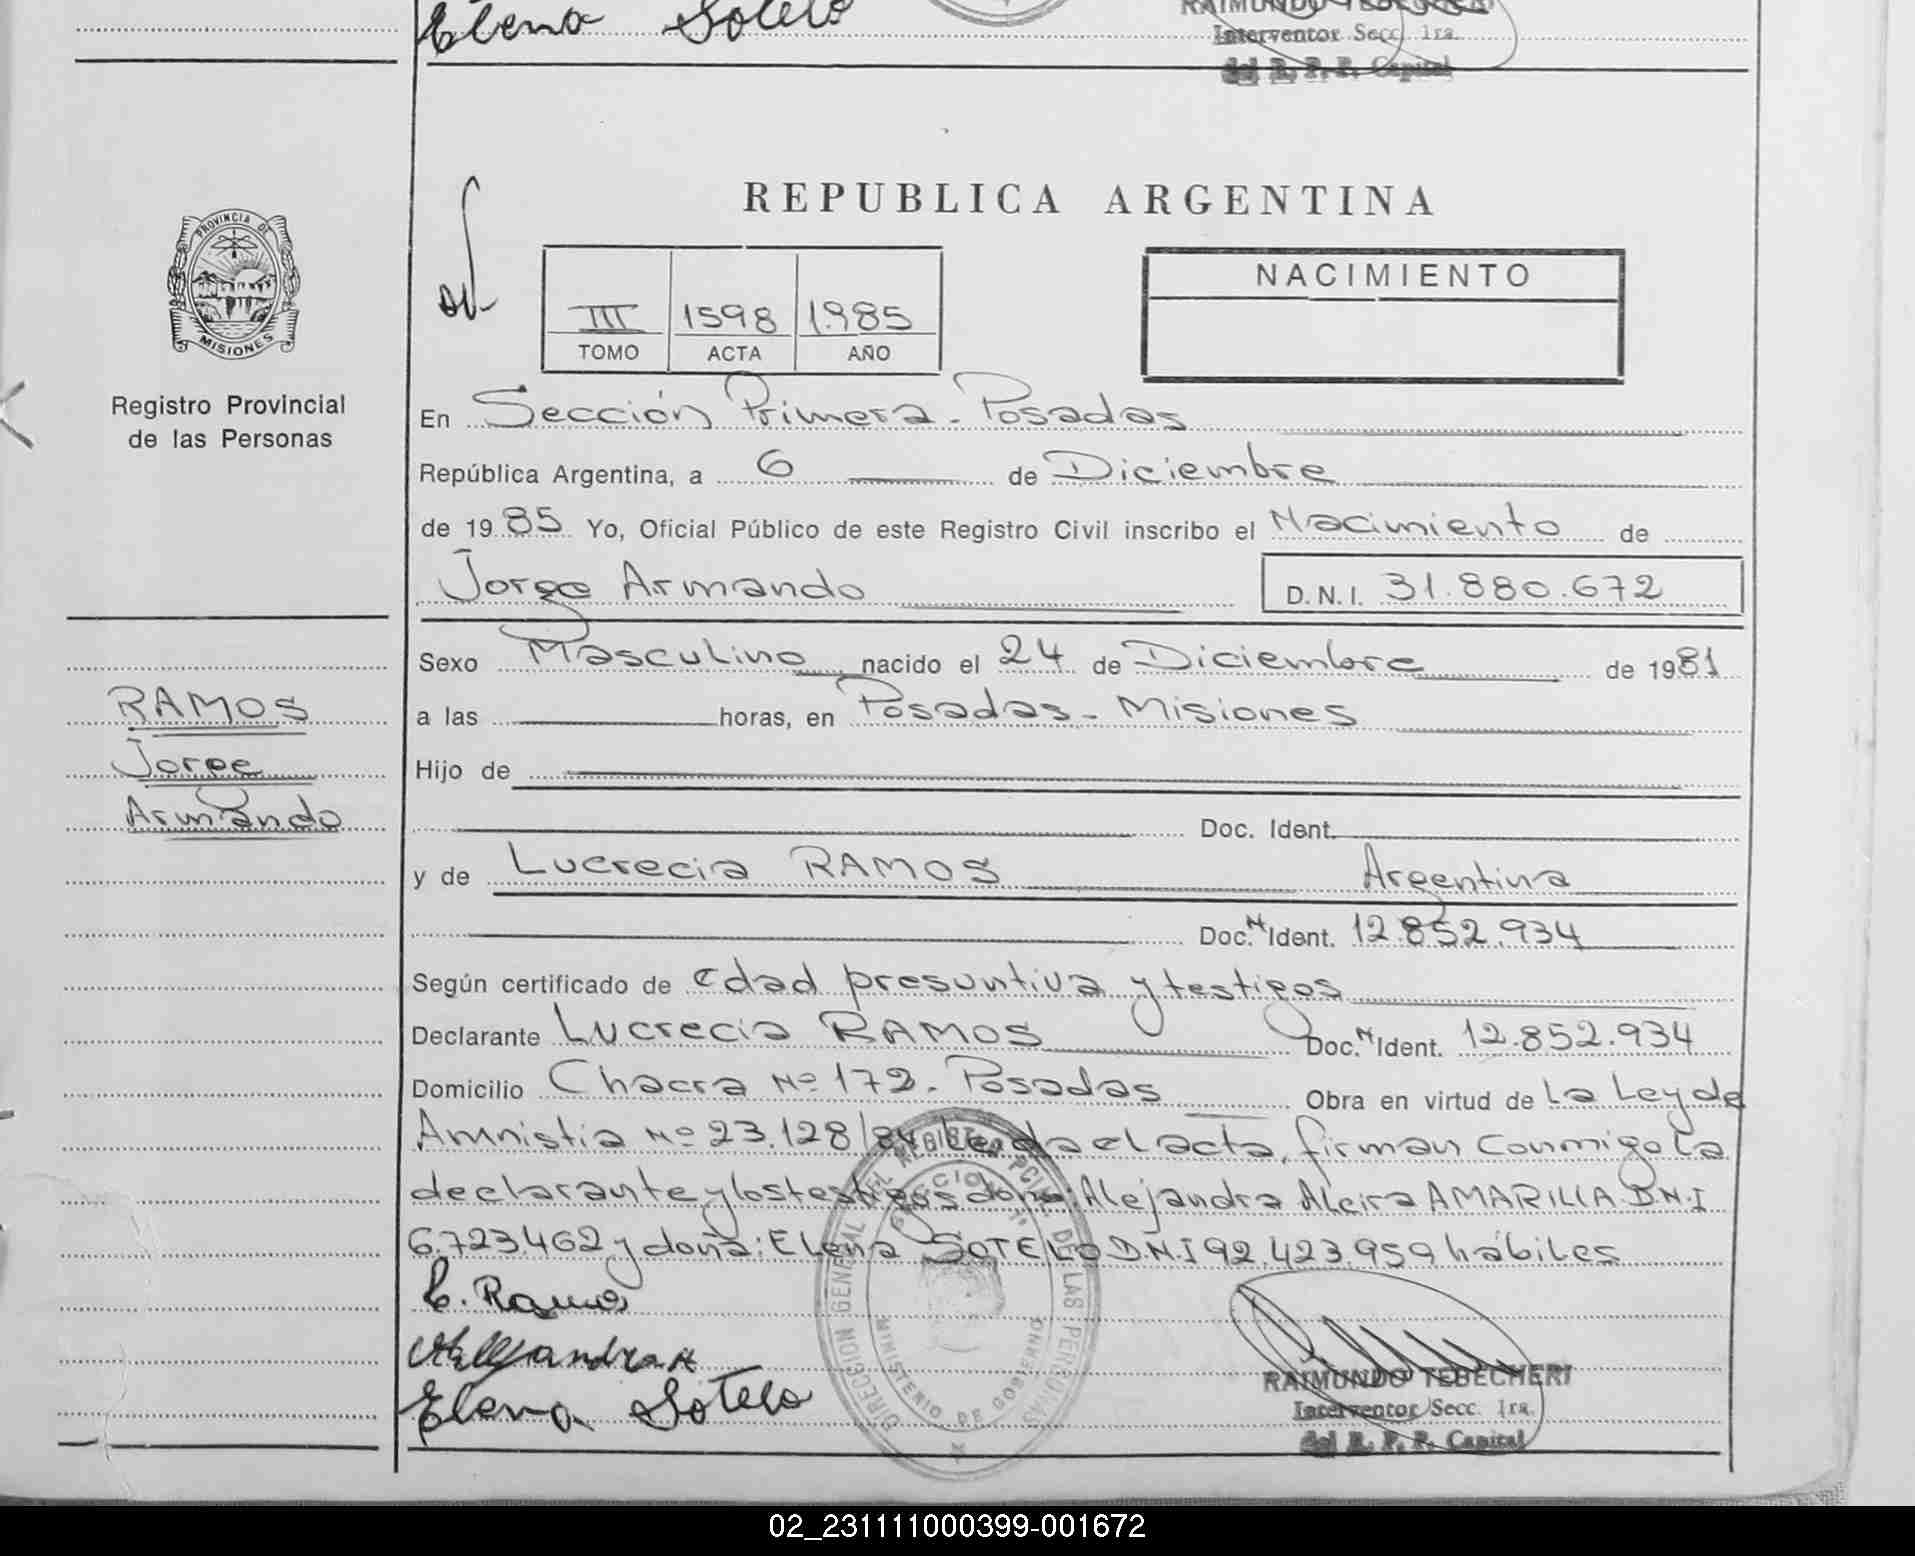 Elena Sotelo
RAIMUNDO TEBECHERI
Interventor Secc. 1ra.
del R. P. P. Capital
REPUBLICA ARGENTINA
PROVINCIA DE
MISIONES
Registro Provincial
de las Personas
III 1598 1.985
TOMO ACTA AÑO
NACIMIENTO
En Sección Primera - Posadas
República Argentina, a 6 de Diciembre
de 1985 Yo, Oficial Público de este Registro Civil inscribo el Nacimiento de
Jorge Armando D.N.I. 31.880.672
Sexo Masculino nacido el 24 de Diciembre de 1981
RAMOS
Jorge
Armando
a las horas, en Posadas - Misiones
Hijo de
Doc. Ident.
y de Lucrecia RAMOS Argentina
Doc. N Ident. 12.852.934
Según certificado de edad presuntiva y testigos
Declarante Lucrecia RAMOS Doc. N Ident. 12.852.934
Domicilio Chacra Nº 172. Posadas Obra en virtud de la Ley de
Amnistia Nº 23.128/84 Leida el acta, firman conmigo la
declarante y los testigos doña: Alejandra Alcira AMARILLA D.N.I
6.723.462 y doña: Elena SOTELO D.N.I 92.423.959 hábiles
L. Ramos
Alejandra A
Elena Sotelo
DIRECCION GENERAL DEL REGISTRO PCIAL DE LAS PERSONAS
SECCION 1ª
MINISTERIO DE GOBIERNO
RAIMUNDO TEBECHERI
Interventor Secc. 1ra.
del R. P. P. Capital
02_231111000399-001672